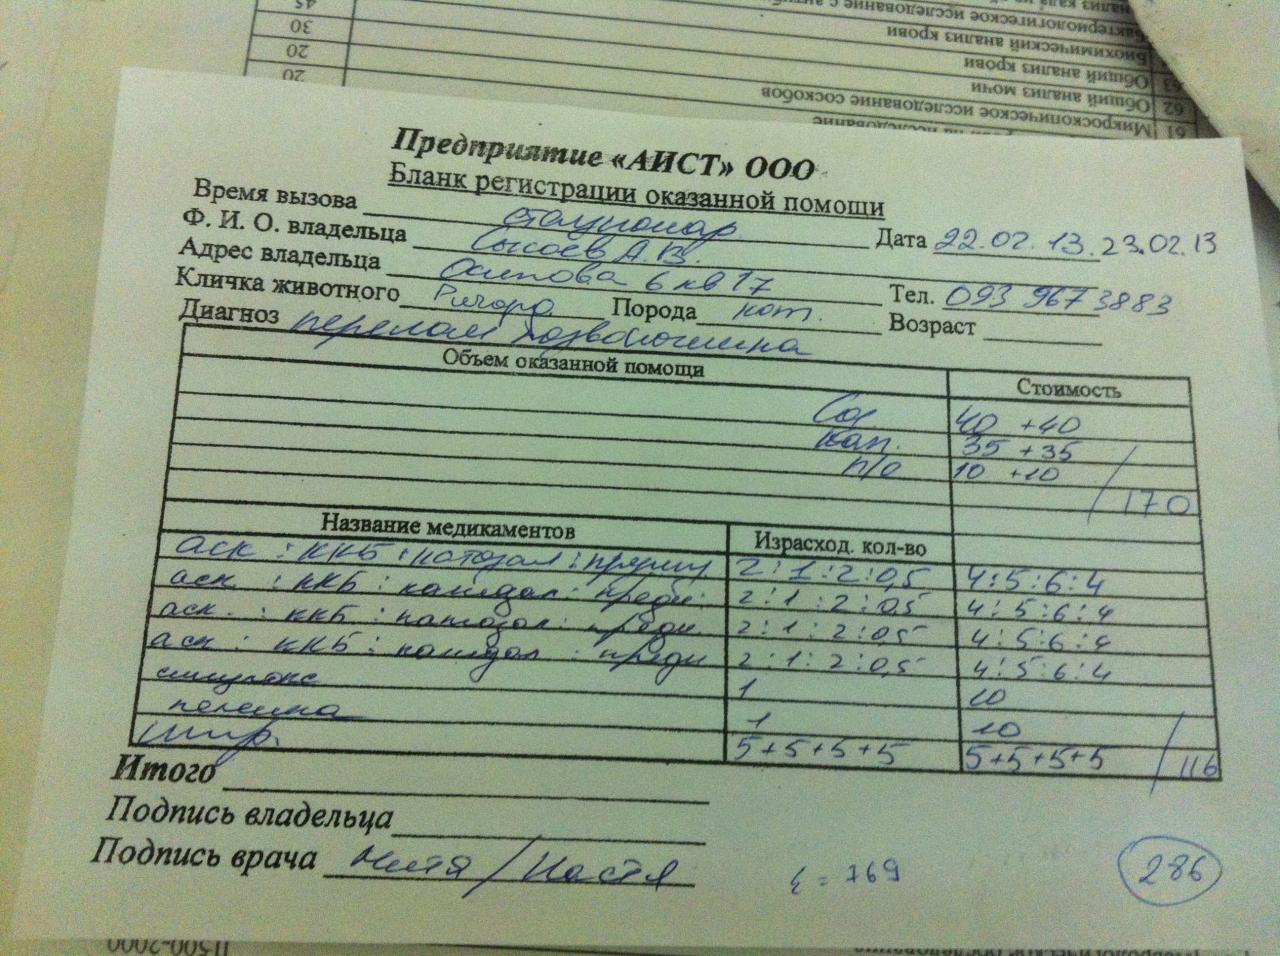 45
30 Биохимический анализ крови
20 63 Общий анализ крови
20 62 Общий анализ мочи
61 Микроскопическое исследование соскобов
Предприятие «АИСТ» ООО
Бланк регистрации оказанной помощи
Время вызова стационар Дата 22.02.13. 23.02.13
Ф. И. О. владельца Сысоев А.В.
Адрес владельца Осипова 6 кв 17 Тел. 093 967 3883
Кличка животного Ричард Порода кот. Возраст
Диагноз перелом позвоночника
Объем оказанной помощи Стоимость
Сод 40 +40
кап. 35 +35
п/о 10 +10
/ 170
Название медикаментов Израсход. кол-во
аск : ККБ : катозал : 2 : 1 : 2 : 0,5 4 : 5 : 6 : 4
аск : ККБ : катозал : предн. 2 : 1 : 2 : 0,5 4 : 5 : 6 : 4
аск. : ККБ : катозал : предн. 2 : 1 : 2 : 0,5 4 : 5 : 6 : 4
аск : ККБ : катозал : предн 2 : 1 : 2 : 0,5 4 : 5 : 6 : 4
1 10
пеленка 1 10
шпр. 5+5+5+5 5+5+5+5 / 116
Итого
Подпись владельца
Подпись врача Митя / Настя
= 769 286
11500-2000